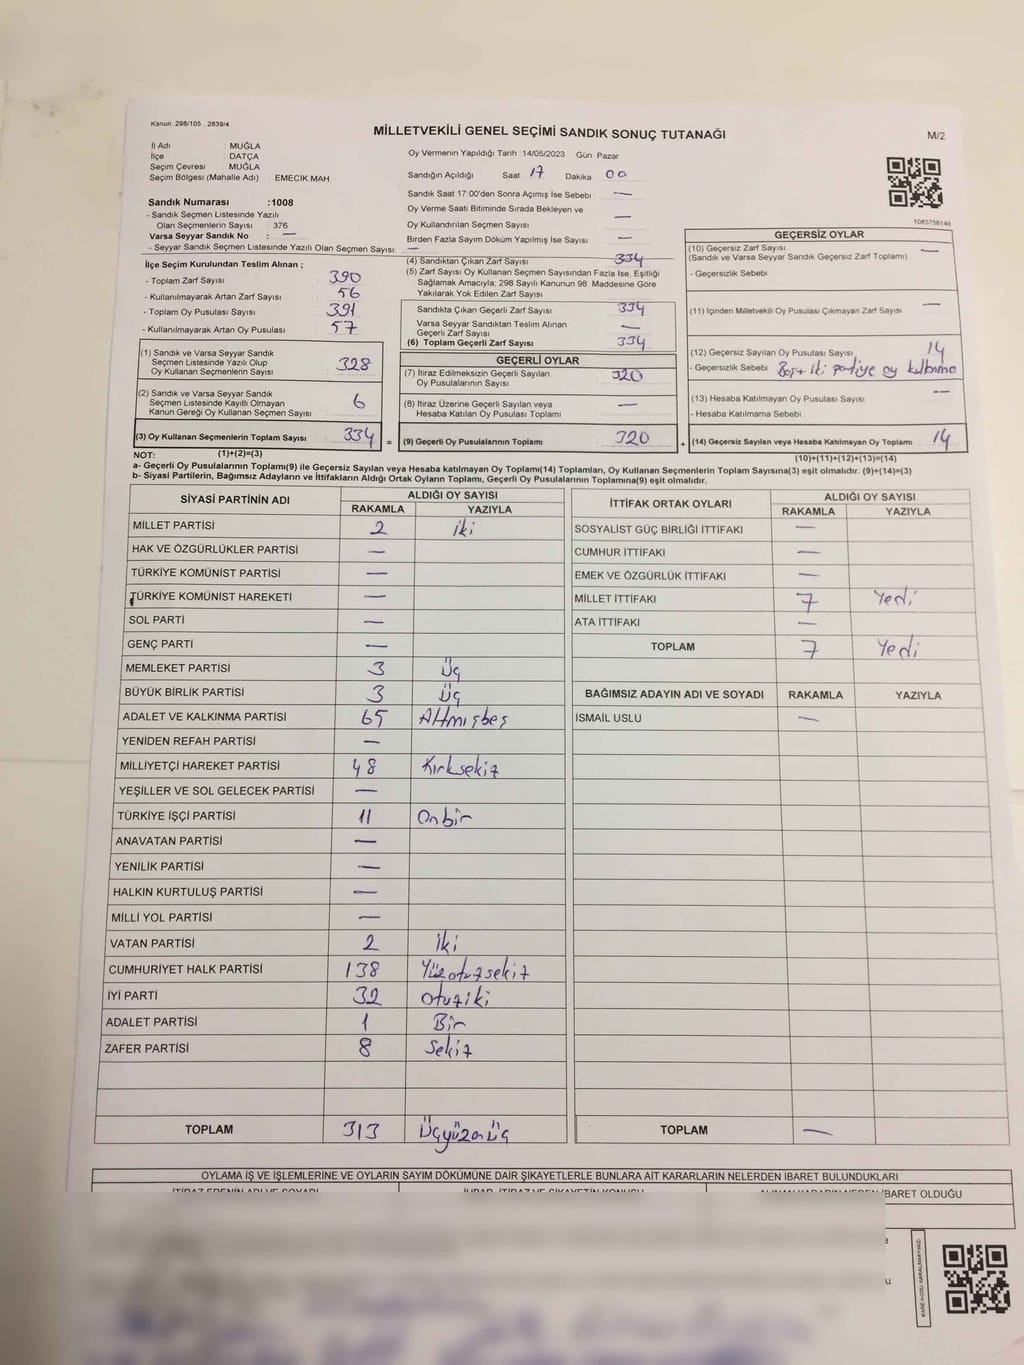 Kanun: 298/105 , 2839/4
MİLLETVEKİLİ GENEL SEÇİMİ SANDIK SONUÇ TUTANAĞI
M/2
İl Adı : MUĞLA
İlçe : DATÇA
Seçim Çevresi : MUĞLA
Seçim Bölgesi (Mahalle Adı) : EMECİK MAH.
Oy Vermenin Yapıldığı Tarih :14/05/2023 Gün Pazar
Sandığın Açıldığı Saat 17 Dakika 00
Sandık Saat 17:00'den Sonra Açımış İse Sebebi : —
Oy Verme Saati Bitiminde Sırada Bekleyen ve
Oy Kullandırılan Seçmen Sayısı —
Birden Fazla Sayım Döküm Yapılmış İse Sayısı —
1083756148
Sandık Numarası :1008
- Sandık Seçmen Listesinde Yazılı
Olan Seçmenlerin Sayısı : 376
Varsa Seyyar Sandık No : —
- Seyyar Sandık Seçmen Listesinde Yazılı Olan Seçmen Sayısı: —
İlçe Seçim Kurulundan Teslim Alınan ;
- Toplam Zarf Sayısı 390
- Kullanılmayarak Artan Zarf Sayısı : 56
- Toplam Oy Pusulası Sayısı 391
- Kullanılmayarak Artan Oy Pusulası 57
(1) Sandık ve Varsa Seyyar Sandık
Seçmen Listesinde Yazılı Olup
Oy Kullanan Seçmenlerin Sayısı 328
(2) Sandık ve Varsa Seyyar Sandık
Seçmen Listesinde Kayıtlı Olmayan
Kanun Gereği Oy Kullanan Seçmen Sayısı : 6
(3) Oy Kullanan Seçmenlerin Toplam Sayısı 334 =
(4) Sandıktan Çıkan Zarf Sayısı 334
(5) Zarf Sayısı Oy Kullanan Seçmen Sayısından Fazla İse, Eşitliği
Sağlamak Amacıyla; 298 Sayılı Kanunun 98. Maddesine Göre
Yakılarak Yok Edilen Zarf Sayısı
Sandıkta Çıkan Geçerli Zarf Sayısı 334
Varsa Seyyar Sandıktan Teslim Alınan
Geçerli Zarf Sayısı —
(6) Toplam Geçerli Zarf Sayısı 334
GEÇERLİ OYLAR
(7) İtiraz Edilmeksizin Geçerli Sayılan
Oy Pusulalarının Sayısı 320
(8) İtiraz Üzerine Geçerli Sayılan veya
Hesaba Katılan Oy Pusulası Toplamı —
(9) Geçerli Oy Pusulalarının Toplamı 320 +
GEÇERSİZ OYLAR
(10) Geçersiz Zarf Sayısı —
(Sandık ve Varsa Seyyar Sandık Geçersiz Zarf Toplamı)
- Geçersizlik Sebebi
(11) İçinden Milletvekili Oy Pusulası Çıkmayan Zarf Sayısı —
(12) Geçersiz Sayılan Oy Pusulası Sayısı 14
- Geçersizlik Sebebi iki partiye oy
(13) Hesaba Katılmayan Oy Pusulası Sayısı —
- Hesaba Katılmama Sebebi
(14) Geçersiz Sayılan veya Hesaba Katılmayan Oy Toplamı 14
NOT: (1)+(2)=(3) (10)+(11)+(12)+(13)=(14)
a- Geçerli Oy Pusulalarının Toplamı(9) ile Geçersiz Sayılan veya Hesaba katılmayan Oy Toplamı(14) Toplamları, Oy Kullanan Seçmenlerin Toplam Sayısına(3) eşit olmalıdır. (9)+(14)=(3)
b- Siyasi Partilerin, Bağımsız Adayların ve İttifakların Aldığı Ortak Oyların Toplamı, Geçerli Oy Pusulalarının Toplamına(9) eşit olmalıdır.
SİYASİ PARTİNİN ADI ALDIĞI OY SAYISI
RAKAMLA YAZIYLA
MİLLET PARTİSİ 2 iki
HAK VE ÖZGÜRLÜKLER PARTİSİ —
TÜRKİYE KOMÜNİST PARTİSİ —
TÜRKİYE KOMÜNİST HAREKETİ —
SOL PARTİ —
GENÇ PARTİ —
MEMLEKET PARTİSİ 3 üç
BÜYÜK BİRLİK PARTİSİ 3 üç
ADALET VE KALKINMA PARTİSİ 65 Altmışbeş
YENİDEN REFAH PARTİSİ —
MİLLİYETÇİ HAREKET PARTİSİ 48 Kırksekiz
YEŞİLLER VE SOL GELECEK PARTİSİ —
TÜRKİYE İŞÇİ PARTİSİ 11 Onbir
ANAVATAN PARTİSİ —
YENİLİK PARTİSİ —
HALKIN KURTULUŞ PARTİSİ —
MİLLİ YOL PARTİSİ —
VATAN PARTİSİ 2 iki
CUMHURİYET HALK PARTİSİ 138 Yüzotuzsekiz
İYİ PARTİ 32 otuziki
ADALET PARTİSİ 1 Bir
ZAFER PARTİSİ 8 Sekiz
TOPLAM 313 Üçyüzonüç
İTTİFAK ORTAK OYLARI ALDIĞI OY SAYISI
RAKAMLA YAZIYLA
SOSYALİST GÜÇ BİRLİĞİ İTTİFAKI —
CUMHUR İTTİFAKI —
EMEK VE ÖZGÜRLÜK İTTİFAKI —
MİLLET İTTİFAKI 7 Yedi
ATA İTTİFAKI —
TOPLAM 7 Yedi
BAĞIMSIZ ADAYIN ADI VE SOYADI RAKAMLA YAZIYLA
İSMAİL USLU —
TOPLAM —
OYLAMA İŞ VE İŞLEMLERİNE VE OYLARIN SAYIM DÖKÜMÜNE DAİR ŞİKAYETLERLE BUNLARA AİT KARARLARIN NELERDEN İBARET BULUNDUKLARI
İBARET OLDUĞU
KARE KODU KARALAMAYINIZ!